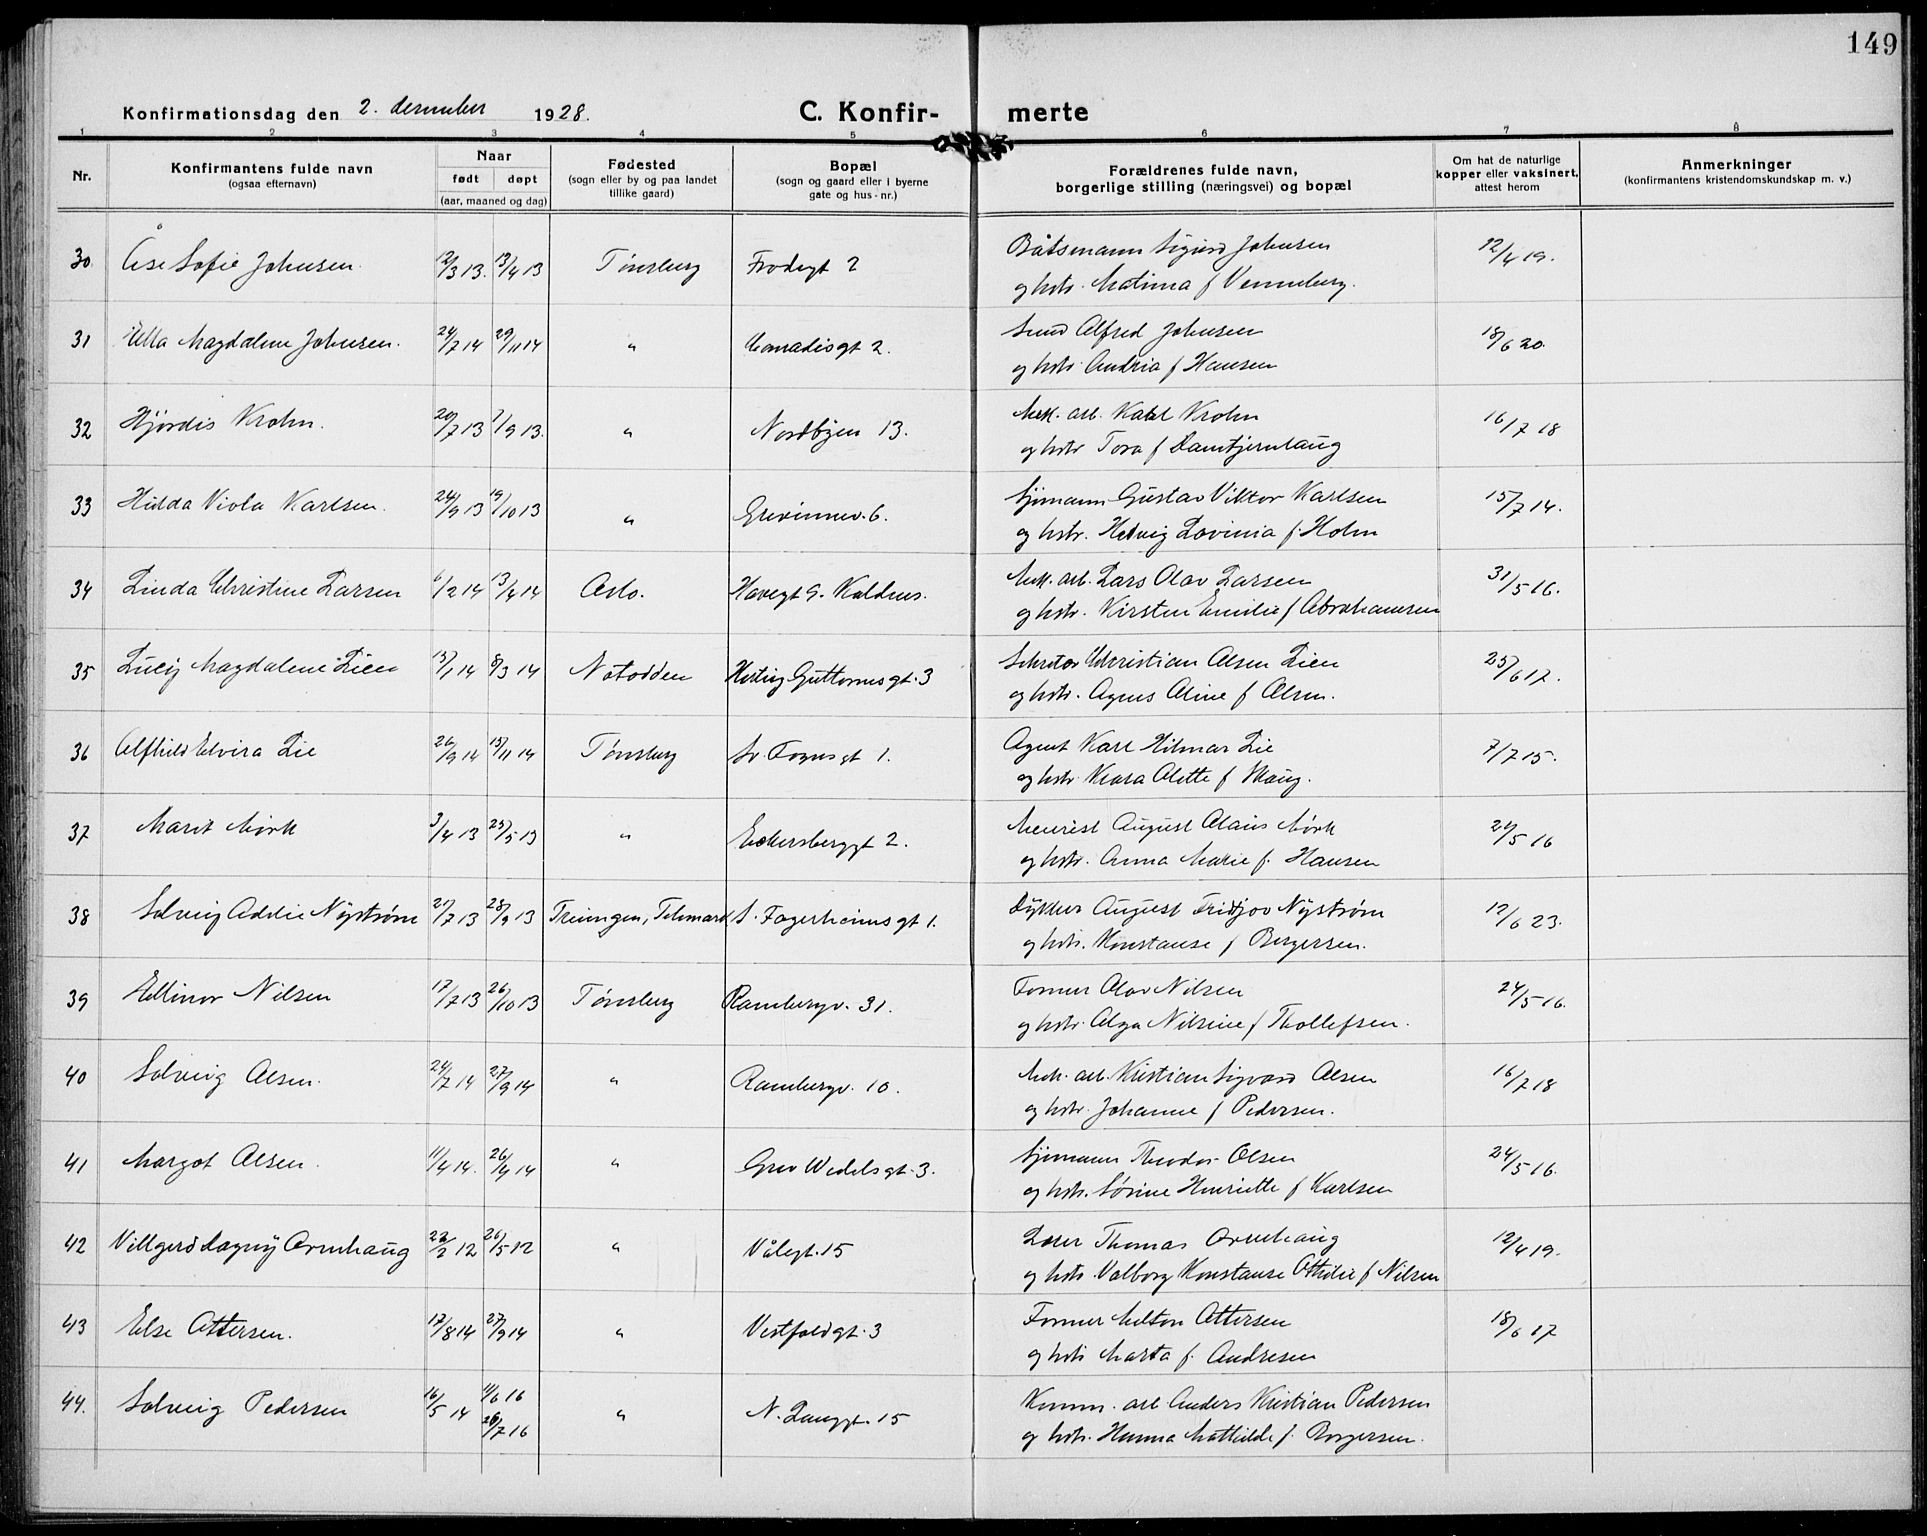 149
Konfirmationsdag den 2. desember 1928.
C. Konfir- merte
1 2 3 4 5 6 7 8
Nr.
Konfirmantens fulde navn
(ogsaa efternavn)
Naar
født døpt
(aar, maaned og dag)
Fødested
(sogn eller by og paa landet
tillike gaard)
Bopæl
(sogn og gaard eller i byerne
gate og hus-nr.)
Forældrenes fulde navn,
borgerlige stilling (næringsvei) og bopæl
Om hat de naturlige
kopper eller vaksinert,
attest herom
Anmerkninger
(konfirmantens kristendomskundskap m. v.)
30 Åse Sofie Johnsen. 12/3 13. 13/4 13 Tønsberg Frodegt 2 Båtsmann Sigurd Johnsen 12/4 19.
og hstr. Matima f Venneberg.
31 Ella Magdalene Johnsen. 24/7 14 29/11 14 " Conradisgt 2. Smed Alfred Johnsen 18/6 20.
og hstr Andria f Hansen
32 Hjørdis Krohn. 20/7 13 7/9 13. " Nordbyen 13. Mek. arb. Karl Krohn 16/7 18
og hstr Tora f Damtjernhaug
33 Hilda Viola Karlsen. 24/9 13 19/10 13 " Grevinnev. 6. Sjømann Gustav Viktor Karlsen 15/7 14.
og hstr. Hedvig Lovinia f. Holm
34 Linda Christine Larsen 6/2 14 13/4 14 Oslo. Havegt 9. Kaldnes. Mek. arb. Lars Olav Larsen 31/5 16.
og hstr. Kirsten Emilie f Abrahamsen
35 Lucy Magdalene Lien 15/1 14 8/3 14 Notodden Hertug Guttormsgt. 3 Christian Olsen Lien 25/6 17.
og hstr. Agnes Oline f Olsen.
36 Alfhild Elvira Lie 26/9 14 15/11 14 Tønsberg Sv. Foynsgt 1. Agent Karl Hilmar Lie 7/7 15.
og hstr Klara Olette f Haug.
37 Marit Mørk 3/4 13 25/5 13 " Eckersberggt 2. August Olaus Mørk 24/5 16
og hstr. Anna Marie f. Hansen
38 Solveig Addie Nystrøm 27/7 13 28/9 13 Treungen, Telemark S. Fagerheimsgt 1. Dykker August Fridtjov Nystrøm 12/6 23.
og hstr. Konstanse f Bergersen.
39 Ellinor Nilsen 17/7 13 26/10 13 Tønsberg Rambergv. 31. Former Olav Nilsen 24/5 16.
og hstr. Olga Nilsine f Thollefsen.
40 Solveig Olsen. 24/7 14 27/9 14 " Rambergv. 10. Mek. arb. Kristian Sigvard Olsen 16/7 18
og hstr. Johanne f Pedersen.
41 Margot Olsen. 11/4 14. 26/4 14 " Grev Wedelsgt. 3. Sjømann Theodor Olsen 24/5 16.
og hstr. Sørine Henriette f Karlsen
42 Villgerd Dagny Ormhaug 22/2 12 26/5 12 " Vålegt. 15 Thomas Ormhaug 12/4 19.
og hstr. Valborg Konstanse Othilie f Nilsen
43 Else Ottersen. 17/8 14 27/9 14 " Vestfoldgt. 3 Former Milton Ottersen 18/6 17
og hstr Marta f. Andresen
44. Solveig Pedersen 16/5 14 11/6 16 " N. Langgt. 15 Komm. arb Anders Kristian Pedersen
26/7 16 og hstr. Hanna Mathilde f. Borgersen.